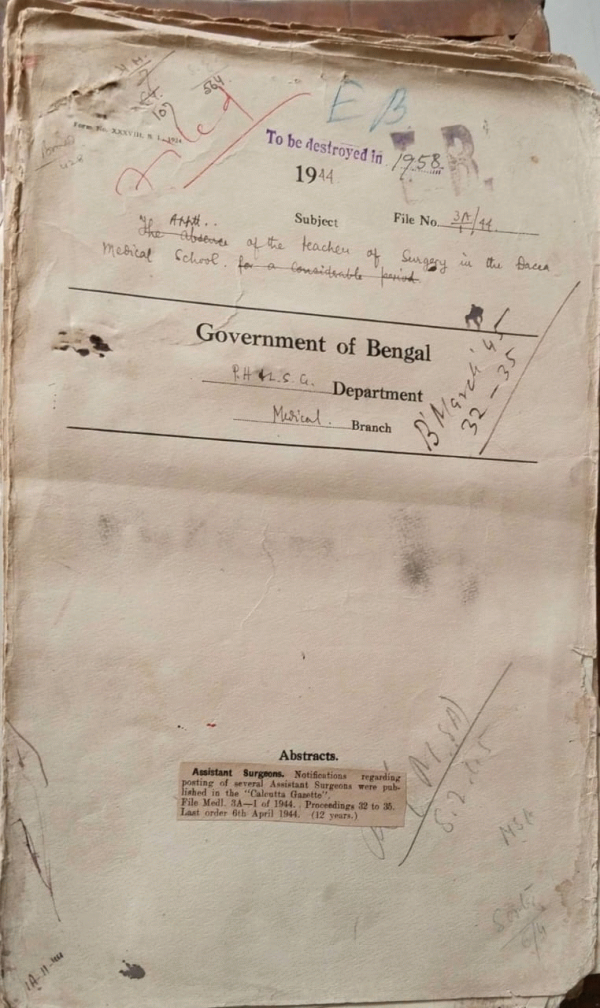 564
107
Form No. XXXVIII
E B
To be destroyed in 1958.
1944
Subject
File No. 3A/1/44.
The Absence of the teacher of Surgery in the Dacca
Medical School. for a considerable period.
Government of Bengal
Department
Medical. Branch
B March '45
32-35
Abstracts.
Assistant Surgeons. Notifications regarding
posting of several Assistant Surgeons were pub-
lished in the "Calcutta Gazette".
File Medl. 3A—1 of 1944. Proceedings 32 to 35.
Last order 6th April 1944. (12 years.)